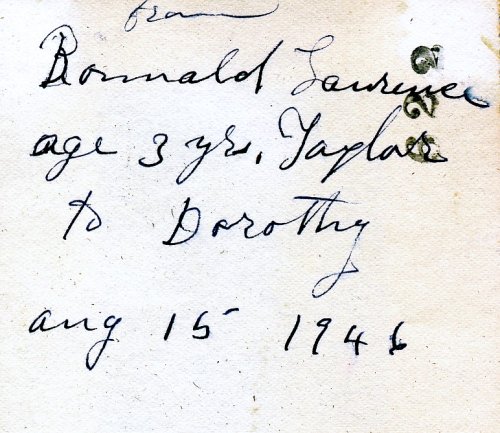 from
Ronnald Laurence
age 3 yrs, Taylor
to Dorothy
aug 15 1946
622